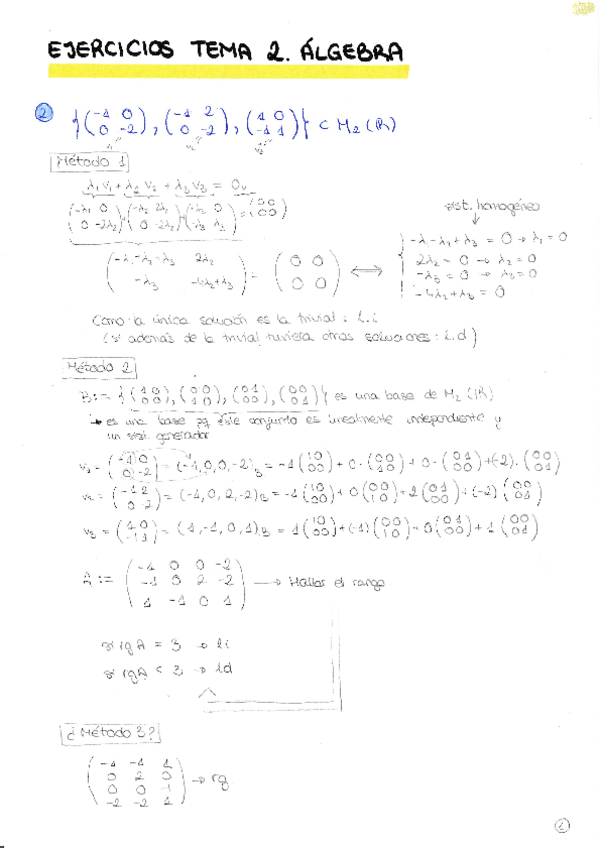 EJERCICIOS TEMA 2. ÁLGEBRA
② {(-1 0 / 0 -2), (-1 2 / 0 -2), (1 0 / -1 1)} ⊂ M₂(ℝ)
v₁ v₂ v₃
Método 1
λ₁v₁ + λ₂v₂ + λ₃v₃ = 0ᵥ
(-λ₁ 0 / 0 -2λ₁) + (-λ₂ 2λ₂ / 0 -2λ₂) + (λ₃ 0 / -λ₃ λ₃) = (0 0 / 0 0)
sist. homogéneo
(-λ₁-λ₂-λ₃ 2λ₂ / -λ₃ -4λ₂+λ₃) = (0 0 / 0 0) ⟺
-λ-λ₂+λ₃ = 0 → λ₁ = 0
2λ₂ = 0 → λ₂ = 0
-λ₃ = 0 → λ₃ = 0
-4λ₂+λ₃ = 0
Como la única solución es la trivial : l.i
(si además de la trivial tuviera otras soluciones : l.d)
Método 2
B := {(1 0 / 0 0), (0 0 / 1 0), (0 1 / 0 0), (0 0 / 0 1)} es una base de M₂(ℝ)
→ es una base pq este conjunto es linealmente independiente y
un sist. generador
v₁ = (-1 0 / 0 -2) = (-1, 0, 0, -2)B = -1 (1 0 / 0 0) + 0 · (0 0 / 1 0) + 0 · (0 1 / 0 0) + (-2) · (0 0 / 0 1)
v₂ = (-1 2 / 0 2) = (-1, 0, 2, -2)B = -1 (1 0 / 0 0) + 0 (0 0 / 1 0) + 2 (0 1 / 0 0) + (-2) (0 0 / 0 1)
v₃ = (1 0 / -1 1) = (1, -1, 0, 1)B = 1 (1 0 / 0 0) + (-1) (0 0 / 1 0) + 0 (0 1 / 0 0) + 1 (0 0 / 0 1)
A := (-1 0 0 -2 / -1 0 2 -2 / 1 -1 0 1) → Hallar el rango
si rgA = 3 → li
si rgA < 3 → ld
¿Método 3?
(-1 -1 1 / 0 2 0 / 0 0 -1 / -2 -2 1) → rg